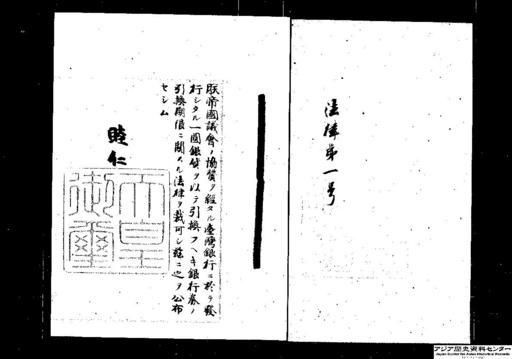 法律第一号
朕帝國議會ノ協賛ヲ經タル臺灣銀行ニ於テ發
行シタル一圓銀貨ヲ以テ引換フヘキ銀行券ノ
引換期限ニ關スル法律ヲ裁可シ茲ニ之ヲ公布
セシム
睦仁
天皇御璽
アジア歴史資料センター
Japan Center for Asian Historical Records